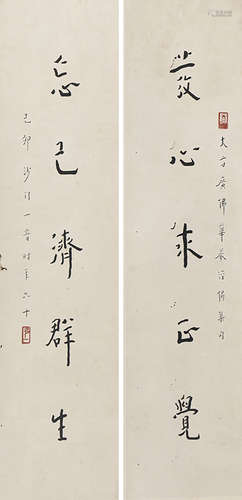 發心求正覺
大方廣佛華嚴經偈集句
忘己濟群生
己卯沙門一音時年六十